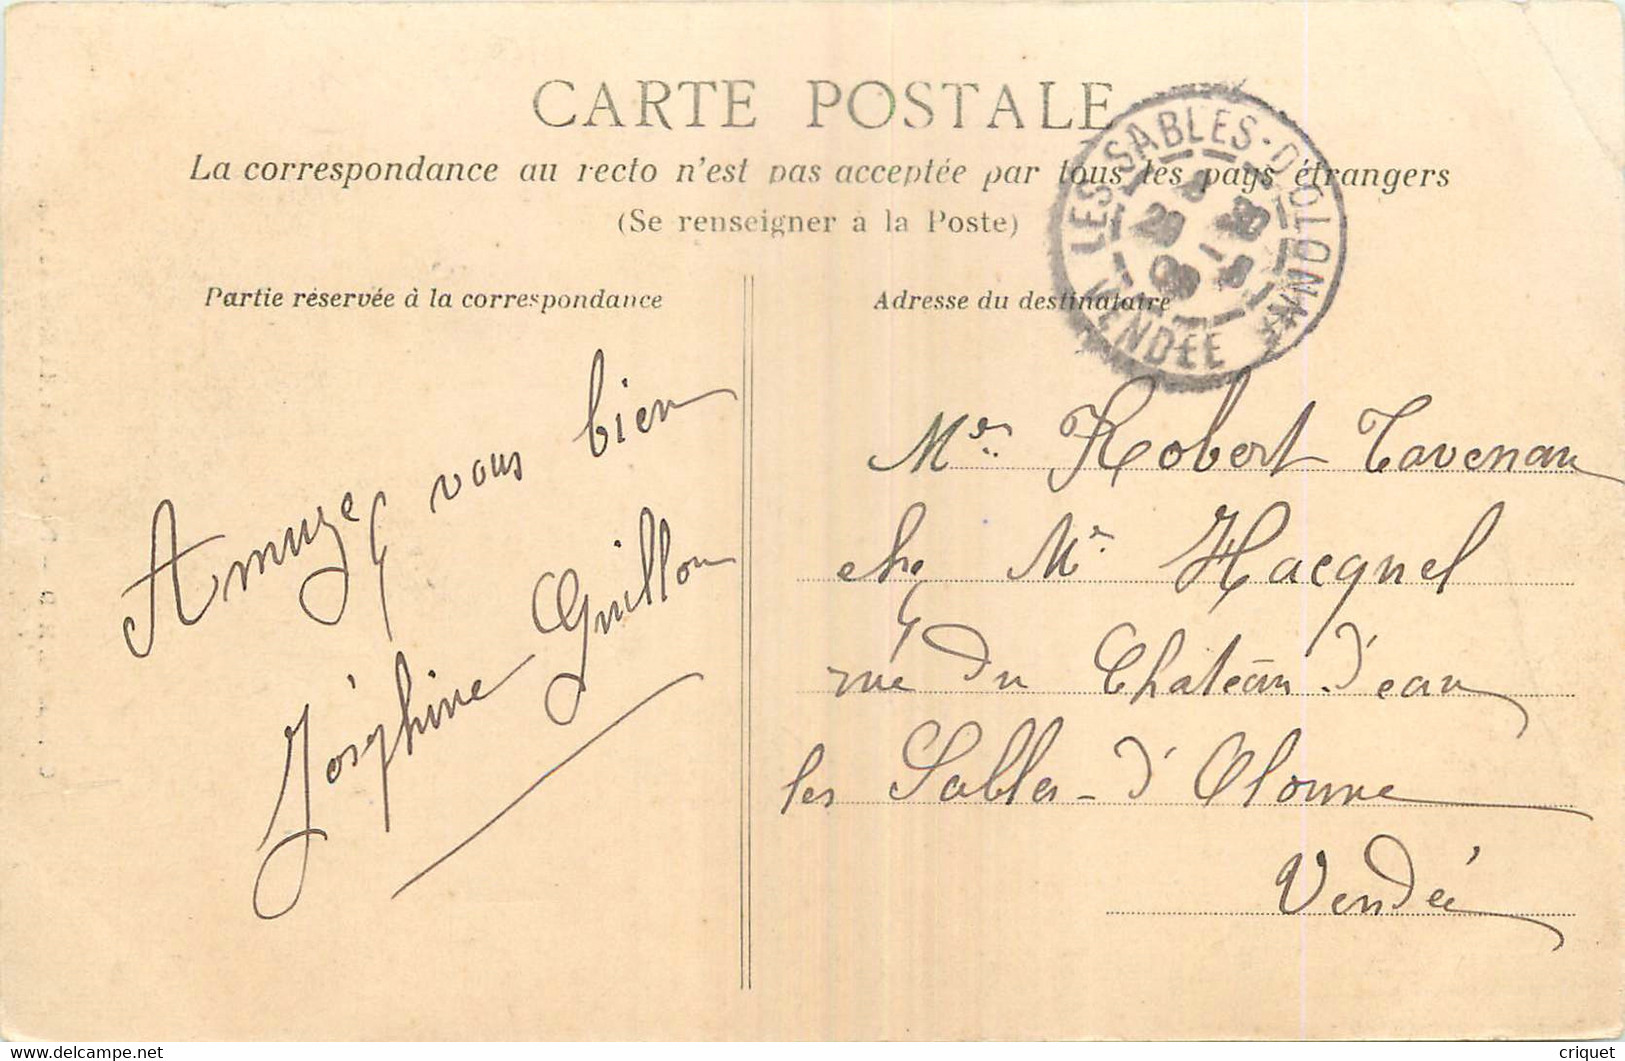 CARTE POSTALE
La correspondance au recto n'est pas acceptée par tous les pays étrangers
(Se renseigner à la Poste)
Partie réservée à la correspondance
Adresse du destinataire
LES SABLES-D'OLONNE
VENDÉE
Amuzez vous bien
Joséphine Guillou
Mr Robert Tavenau
chez Mr Hacquel
rue du Château d'eau
les Sables-d'Olonne
Vendée
www.delcampe.net
criquet